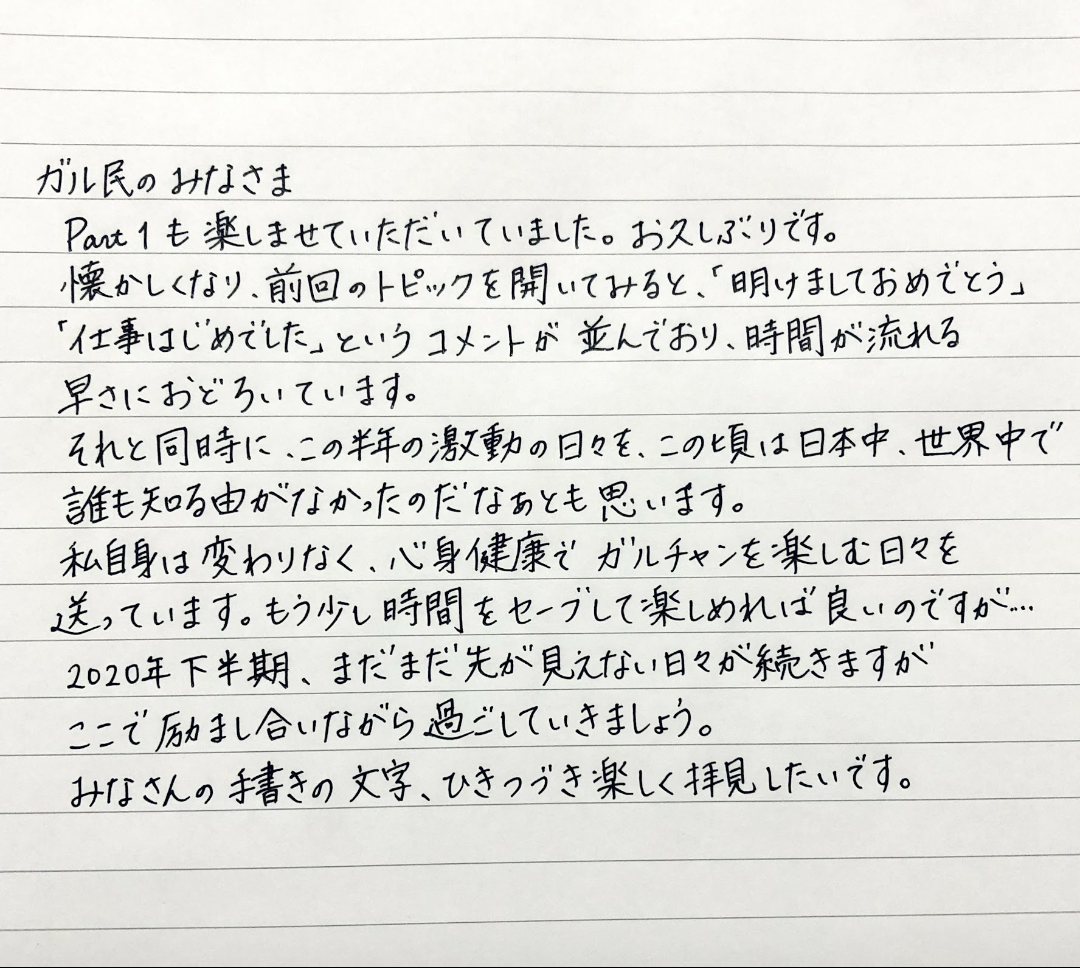 ガル民のみなさま
Part1も楽しませていただいていました。お久しぶりです。
懐かしくなり、前回のトピックを開いてみると、「明けましておめでとう」
「仕事はじめでした」というコメントが並んでおり、時間が流れる
早さにおどろいています。
それと同時に、この半年の激動の日々を、この頃は日本中、世界中で
誰も知る由がなかったのだなぁとも思います。
私自身は変わりなく、心身健康でガルチャンを楽しむ日々を
送っています。もう少し時間をセーブして楽しめれば良いのですが…
2020年下半期、まだまだ先が見えない日々が続きますが
ここで励まし合いながら過ごしていきましょう。
みなさんの手書きの文字、ひきつづき楽しく拝見したいです。